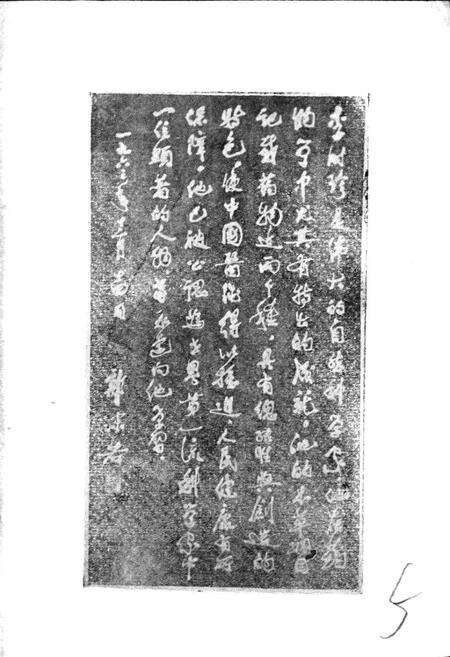 李时珍是伟大的自然科学家他在药
物学中尤其有特出的成就。他的本草纲目
记载药物近两千种，具有总结性与创造的
特色，使中国医药得以推进，人民健康有所
保障，他已被公认为世界第一流科学家中
一位显著的人物，当永远向他学习。
一九六三年 月 日
郭沫若
5